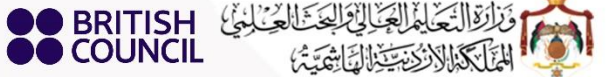 BRITISH
COUNCIL
وزارة التعليم العالي والبحث العلمي
المملكة الأردنية الهاشمية